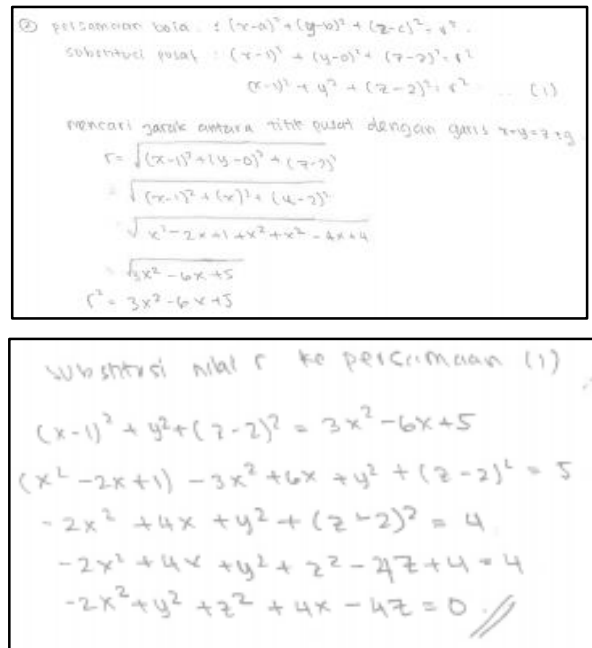 ② persamaan bola : (x-a)² + (y-b)² + (z-c)² = r².
substitusi pusat : (x-1)² + (y-0)² + (z-2)² = r²
(x-1)² + y² + (z-2)² = r² ... (1)
mencari jarak antara titik pusat dengan garis x=y=z : g
r = √(x-1)² + (y-0)² + (z-2)²
= √(x-1)² + (x)² + (x-2)²
√x² - 2x + 1 + x² + x² - 4x + 4
= √3x² - 6x + 5
r² = 3x² - 6x + 5
substitusi nilai r ke persamaan (1)
(x-1)² + y² + (z-2)² = 3x² - 6x + 5
(x² - 2x + 1) - 3x² + 6x + y² + (z-2)² = 5
-2x² + 4x + y² + (z-2)² = 4
-2x² + 4x + y² + z² - 4z + 4 = 4
-2x² + y² + z² + 4x - 4z = 0 //